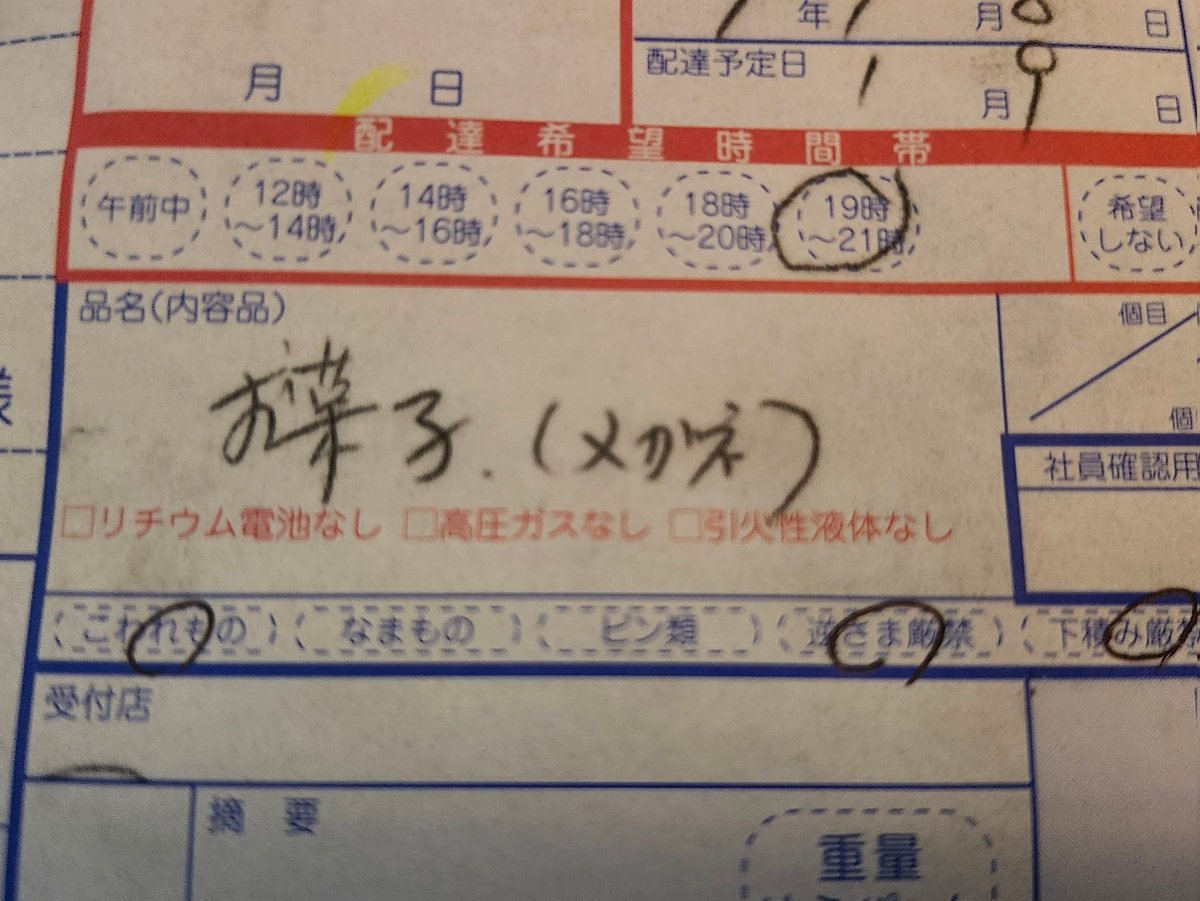 年 1 月 8 日
配達予定日
月 日
1 月 9 日
配達希望時間帯
午前中 12時～14時 14時～16時 16時～18時 18時～20時 19時～21時 希望しない
品名(内容品)
個目
お菓子.(メガネ)
個
社員確認用
□リチウム電池なし □高圧ガスなし □引火性液体なし
こわれもの なまもの ビン類 逆さま厳禁 下積み厳禁
受付店
摘要
重量